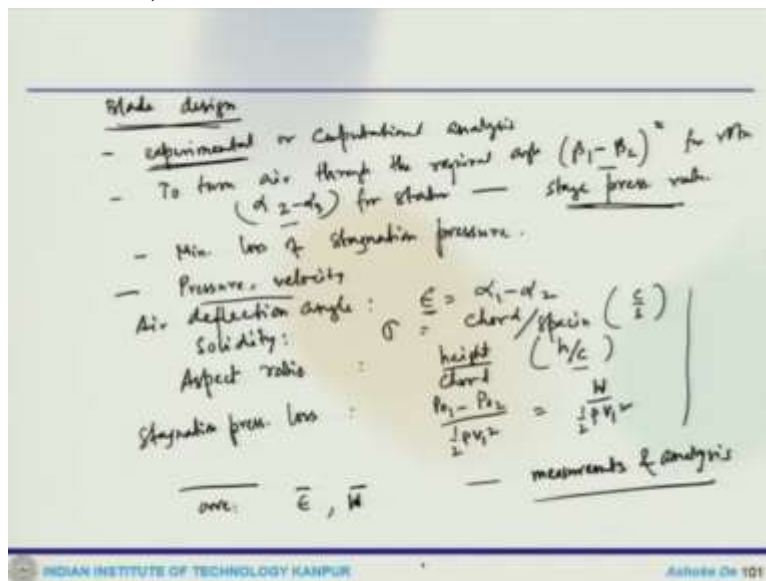 Blade design
- experimental or computational analysis
- To turn air through the required angle (β₁-β₂)° for rotor
(α₂-α₃) for stator — stage press ratio
- Min. loss of stagnation pressure.
- Pressure, velocity
Air deflection angle : ε = α₁-α₂
Solidity: σ = chord/spacin (c/s)
Aspect ratio : height/chord (h/c)
Stagnation press. loss : P₀₁-P₀₂ / ½ρV₁² = W / ½ρV₁²
— measurements & analysis
ave: ε̄, W̄
INDIAN INSTITUTE OF TECHNOLOGY KANPUR
Ashoke De 101